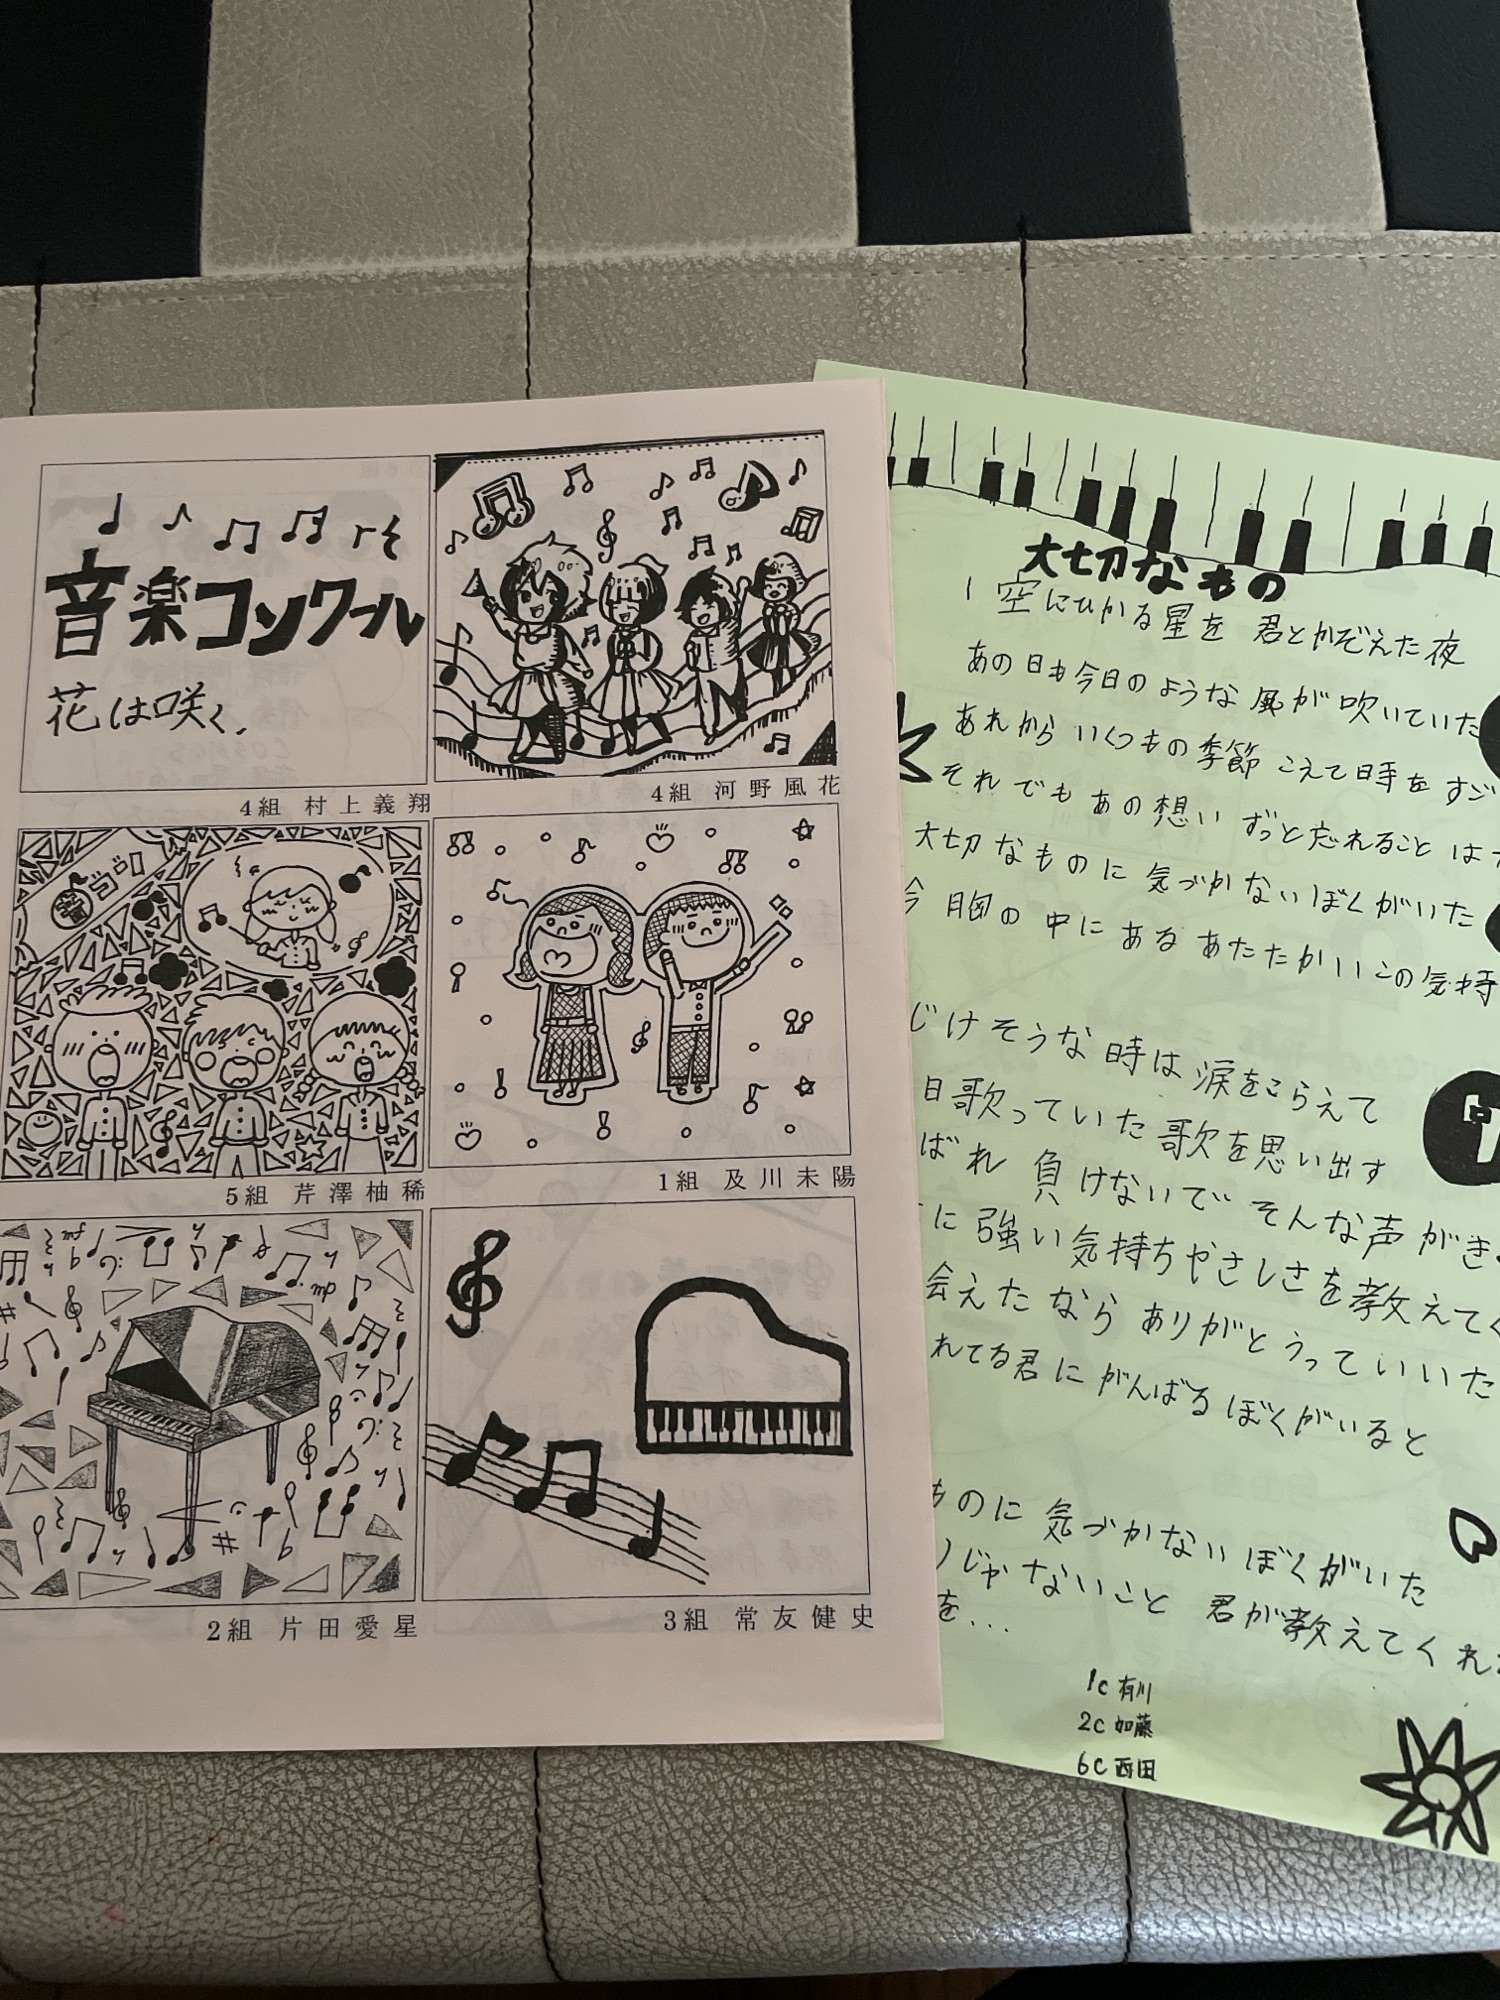 音楽コンワール
花は咲く.
4組 村上義翔
4組 河野風花
音コン
5組 芹澤柚稀
1組 及川未陽
2組 片田愛星
3組 常友健史
大切なもの
1 空にひかる星を 君とかぞえた夜
あの日も今日のような風が吹いていた
あれから いくつもの季節 こえて時を すご
それでもあの想い ずっと忘れること は
大切なものに 気づかないぼくがいた
今 胸の中にある あたたかいこの気持
じけそうな時は 涙をこらえて
日歌っていた歌を思い出す
ばれ 負けないで そんな声がき
に強い気持ちやさしさを教えてく
会えたなら ありがとうっていいた
れてる君に がんばる ぼくがいると
ものに 気づかない ぼくがいた
じゃないこと 君が教えてくれ
を...
1C 有川
2C 加藤
6C 西田